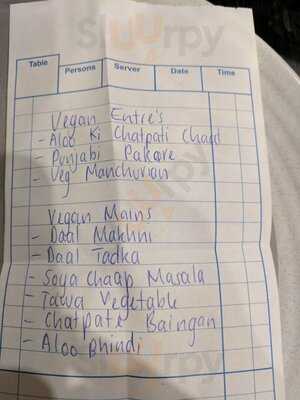 Sluurpy
Table Persons Server Date Time
Vegan Entre's
- Aloo Ki Chatpati Chaad
- Punjabi Pakore
- Veg Manchurian
Vegan Mains
- Daal Makhni
- Daal Tadka
- Soya Chaap Masala
- Tawa Vegetable
- Chatpate Baingan
- Aloo Bhindi
Sluurpy